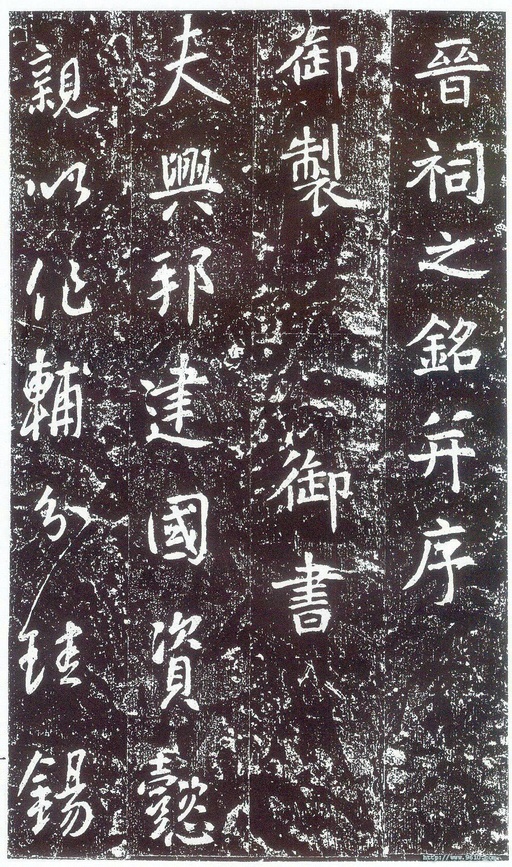 晉祠之銘并序
御製 御書
夫興邦建國資懿
親以作輔分珪錫
http://www.9610.com